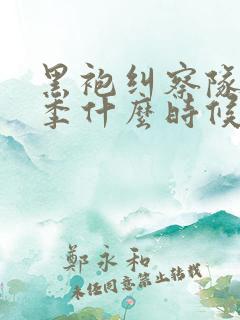 黑袍纠察队
季什麼時候
鄭永和
未经同意禁止转载